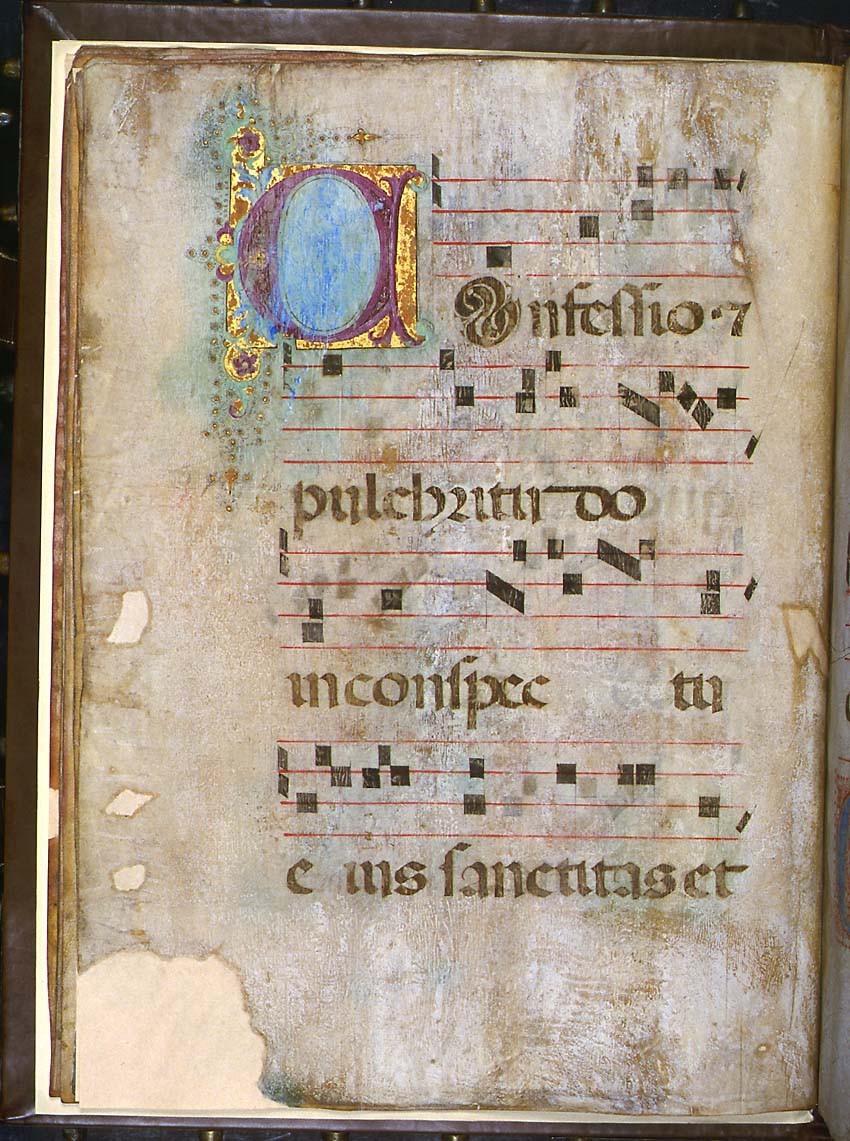 Confessio · ⁊
pulchritudo
in conspec tu
e ius sanctitas et